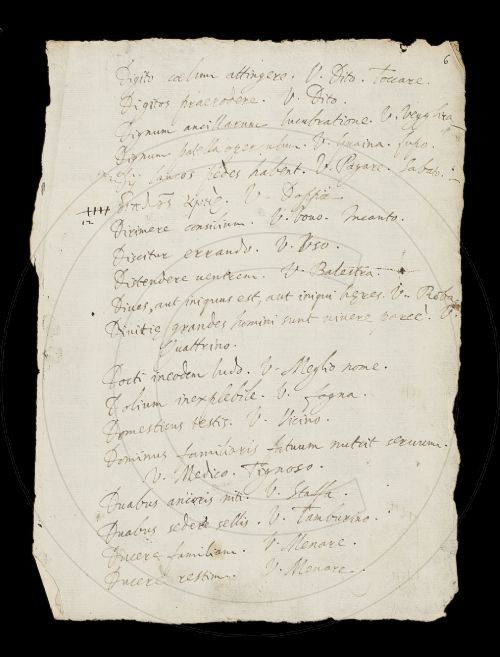 6
Digito coelum attingere. V. Dito. Toccare.
Digitos praerodere. V. Dito.
Dignum ancillarum lucubratione. V. Vegghia
Dignum patella operculum. V. Guaina.
Dii laneos pedes habent. V. Pagare. Sabato.
V. Dassia
12
Dirimere consilium. V. Vovo. Incanto.
Discitur errando. V. Vso.
Distendere ventrem. V. Balestra.
Dives, aut iniquus est, aut iniqui heres. V. Roba.
Divitiae grandes homini sunt vivere parcè. V.
Quattrino.
Docti ineodem ludo. V. Meglio nome.
Dolium inexplebile. V. Fogna.
Domesticus testis. V. Vicino.
Dominus familiaris fatuum nutrit servum.
V. Medico. Tignoso.
Duabus ancoris niti. V. Staffa.
Duabus sedere sellis. V. Tamburino.
Ducere familiam. V. Menare.
Ducere restim. V. Menare.